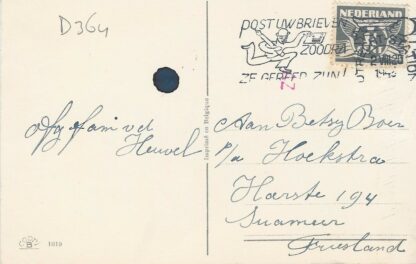 D364
POST UW BRIEVEN
ZOODRA
ZE GEREED ZIJN!
NEDERLAND
Afz fam vd
Heuvel
Imprimé en Belgique
Aan Betsy Boer
p/a Hoekstra
Harste 194
Suameer
Friesland
B
1019